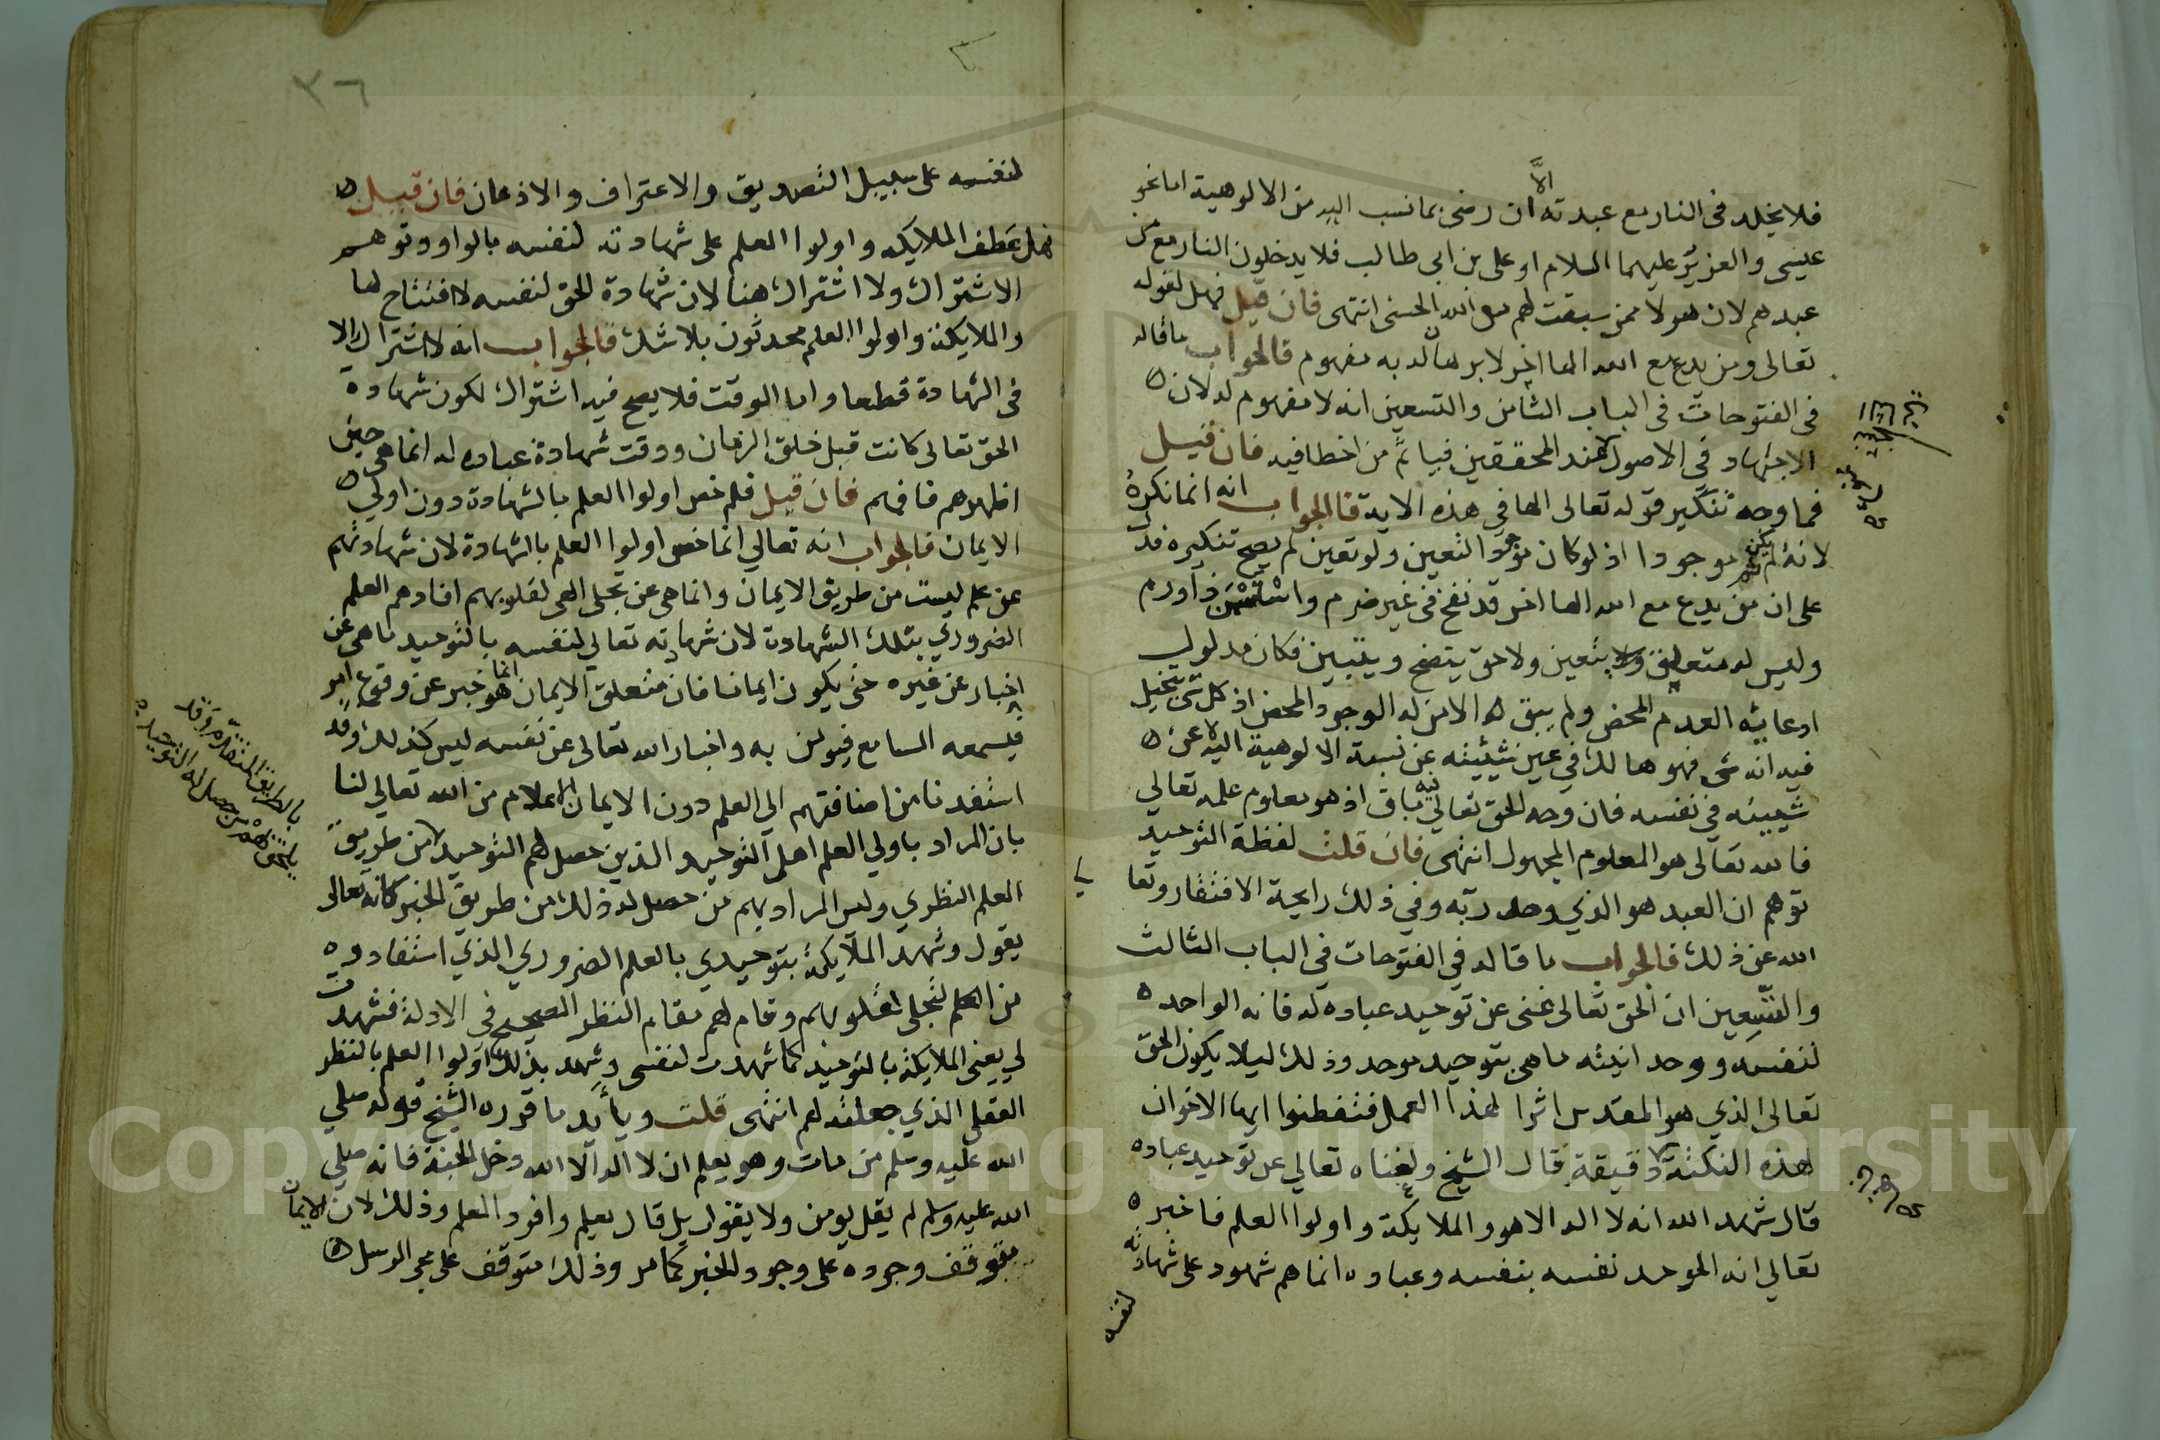 فلا يخلد في النار مع عبدته الا ان رضي بما نسب اليه من الالوهية اما نحو
عيسى والعزير عليهما السلام او علي بن ابي طالب فلا يدخلون النار مع من
عبدهم لان هولا ممن سبقت لهم من الله الحسنى انتهى فان قيل فهل لقوله
تعالى ومن يدع مع الله الها اخر لا برهان له به مفهوم فالجواب ما قاله
في الفتوحات في الباب الثامن والتسعين انه لا مفهوم له لان
الاجتهاد في الاصول عند المحققين فياثم من اخطا فيه فان قيل
فما وجه تنكير قوله تعالى الها في هذه الاية فالجواب انه انما نكره
لانه لم يكن ثم موجودا اذ لو كان موجود التعين ولو تعين لم يصح تنكيره فدل
على ان من يدع مع الله الها اخر قد نفخ في غير ضرم واستسمن ذا ورم
وليس له متعلق يتعين ولا حق يتضح ويتبين فكان مدلول
ادعايئه العدم المحض ولم يبق الا من له الوجود المحض اذ كل شي يتخيل
فيه انه شي فهو هالك في عين شيئيته عن نسبة الالوهية اليه لا عن
شيييته في نفسه فان وجه الحق تعالى فيه باق اذ هو معلوم علمه تعالي
فالله تعالى هو المعلوم المجهول انتهى فان قلت لفظة التوحيد
توهم ان العبد هو الذي وحد ربه وفي ذلك رايحة الافتقار وتعا
الله عن ذلك فالجواب ما قاله في الفتوحات في الباب الثالث
والتسعين ان الحق تعالى غني عن توحيد عباده له فانه الواحد
لنفسه ووحدانيته ما هي بتوحيد موحد وذلك ليلا يكون الحق
تعالى الذي هو المقدس اثرا لهذا العمل فتفطنوا ايها الاخوان
لهذه النكتة دقيقة قال الشيخ ولغناه تعالي عن توحيد عباده
قال شهد الله انه لا اله الا هو والملايكة واولوا العلم فاخبر
تعالي انه الموحد نفسه بنفسه وعباده انما هم شهود على شهادته
لنفسه
٣٦
لنفسه على سبيل التصديق والاعتراف والاذعان فان قيل
فهل عطف الملايكه واولوا العلم على شهادته لنفسه بالواو وتوهم
الاشتراك ولا اشتراك هنا لان شهادة الحق لنفسه لا افتتاح لها
والملايكة واولوا العلم محدثون بلا شك فالجواب انه لا اشتراك الا
في الشهادة قطعا واما الوقت فلا يصح فيه اشتراك لكون شهادة
الحق تعالى كانت قبل خلق الزمان ووقت شهادة عباده له انما هي حين
اظهرهم فافهم فان قيل فلم خص اولوا العلم بالشهادة دون اولي
الايمان فالجواب انه تعالي انما خص اولوا العلم بالشهادة لان شهادتهم
عن علم ليست من طريق الايمان وانما هي عن تجلى الهي لقلوبهم افادهم العلم
الضروري بتلك الشهادة لان شهادته تعالي لنفسه بالتوحيد ما هي عن
اخبار عن غيره حتى يكون ايمانا فان متعلق الايمان انما هو خبر عن وقوع امر
فيسمعه السامع فيومن به واخبار الله تعالى عن نفسه ليس كذلك وقد
استفدنا من اضافتهم الي العلم دون الايمان الاعلام من الله تعالي لنا
بان المراد باولي العلم اهل التوحيد الذين حصل لهم التوحيد من طريق
العلم النظري وليس المراد بهم من حصل له ذلك من طريق الخبر كانه تعالى
يقول وشهدت الملايكة بتوحيدي بالعلم الضروري الذي استفادوه
من العلم لتجلى لقلوبهم وقام لهم مقام النظر الصحيح في الادلة فشهدت
لي يعني الملايكة بالتوحيد كما شهدت لنفسي وشهد بذلك اولوا العلم بالنظر
العقلي الذي جعلته لهم انتهى قلت ويأيد ما قرره الشيخ قوله صلي
الله عليه وسلم من مات وهو يعلم ان لا اله الا الله دخل الجنة فانه صلي
الله عليه وسلم لم يقل يومن ولا يقول بل قال يعلم وافرد العلم وذلك لان الايمان
متوقف وجوده على وجود الخبر كما مر وذلك متوقف على مجي الرسل